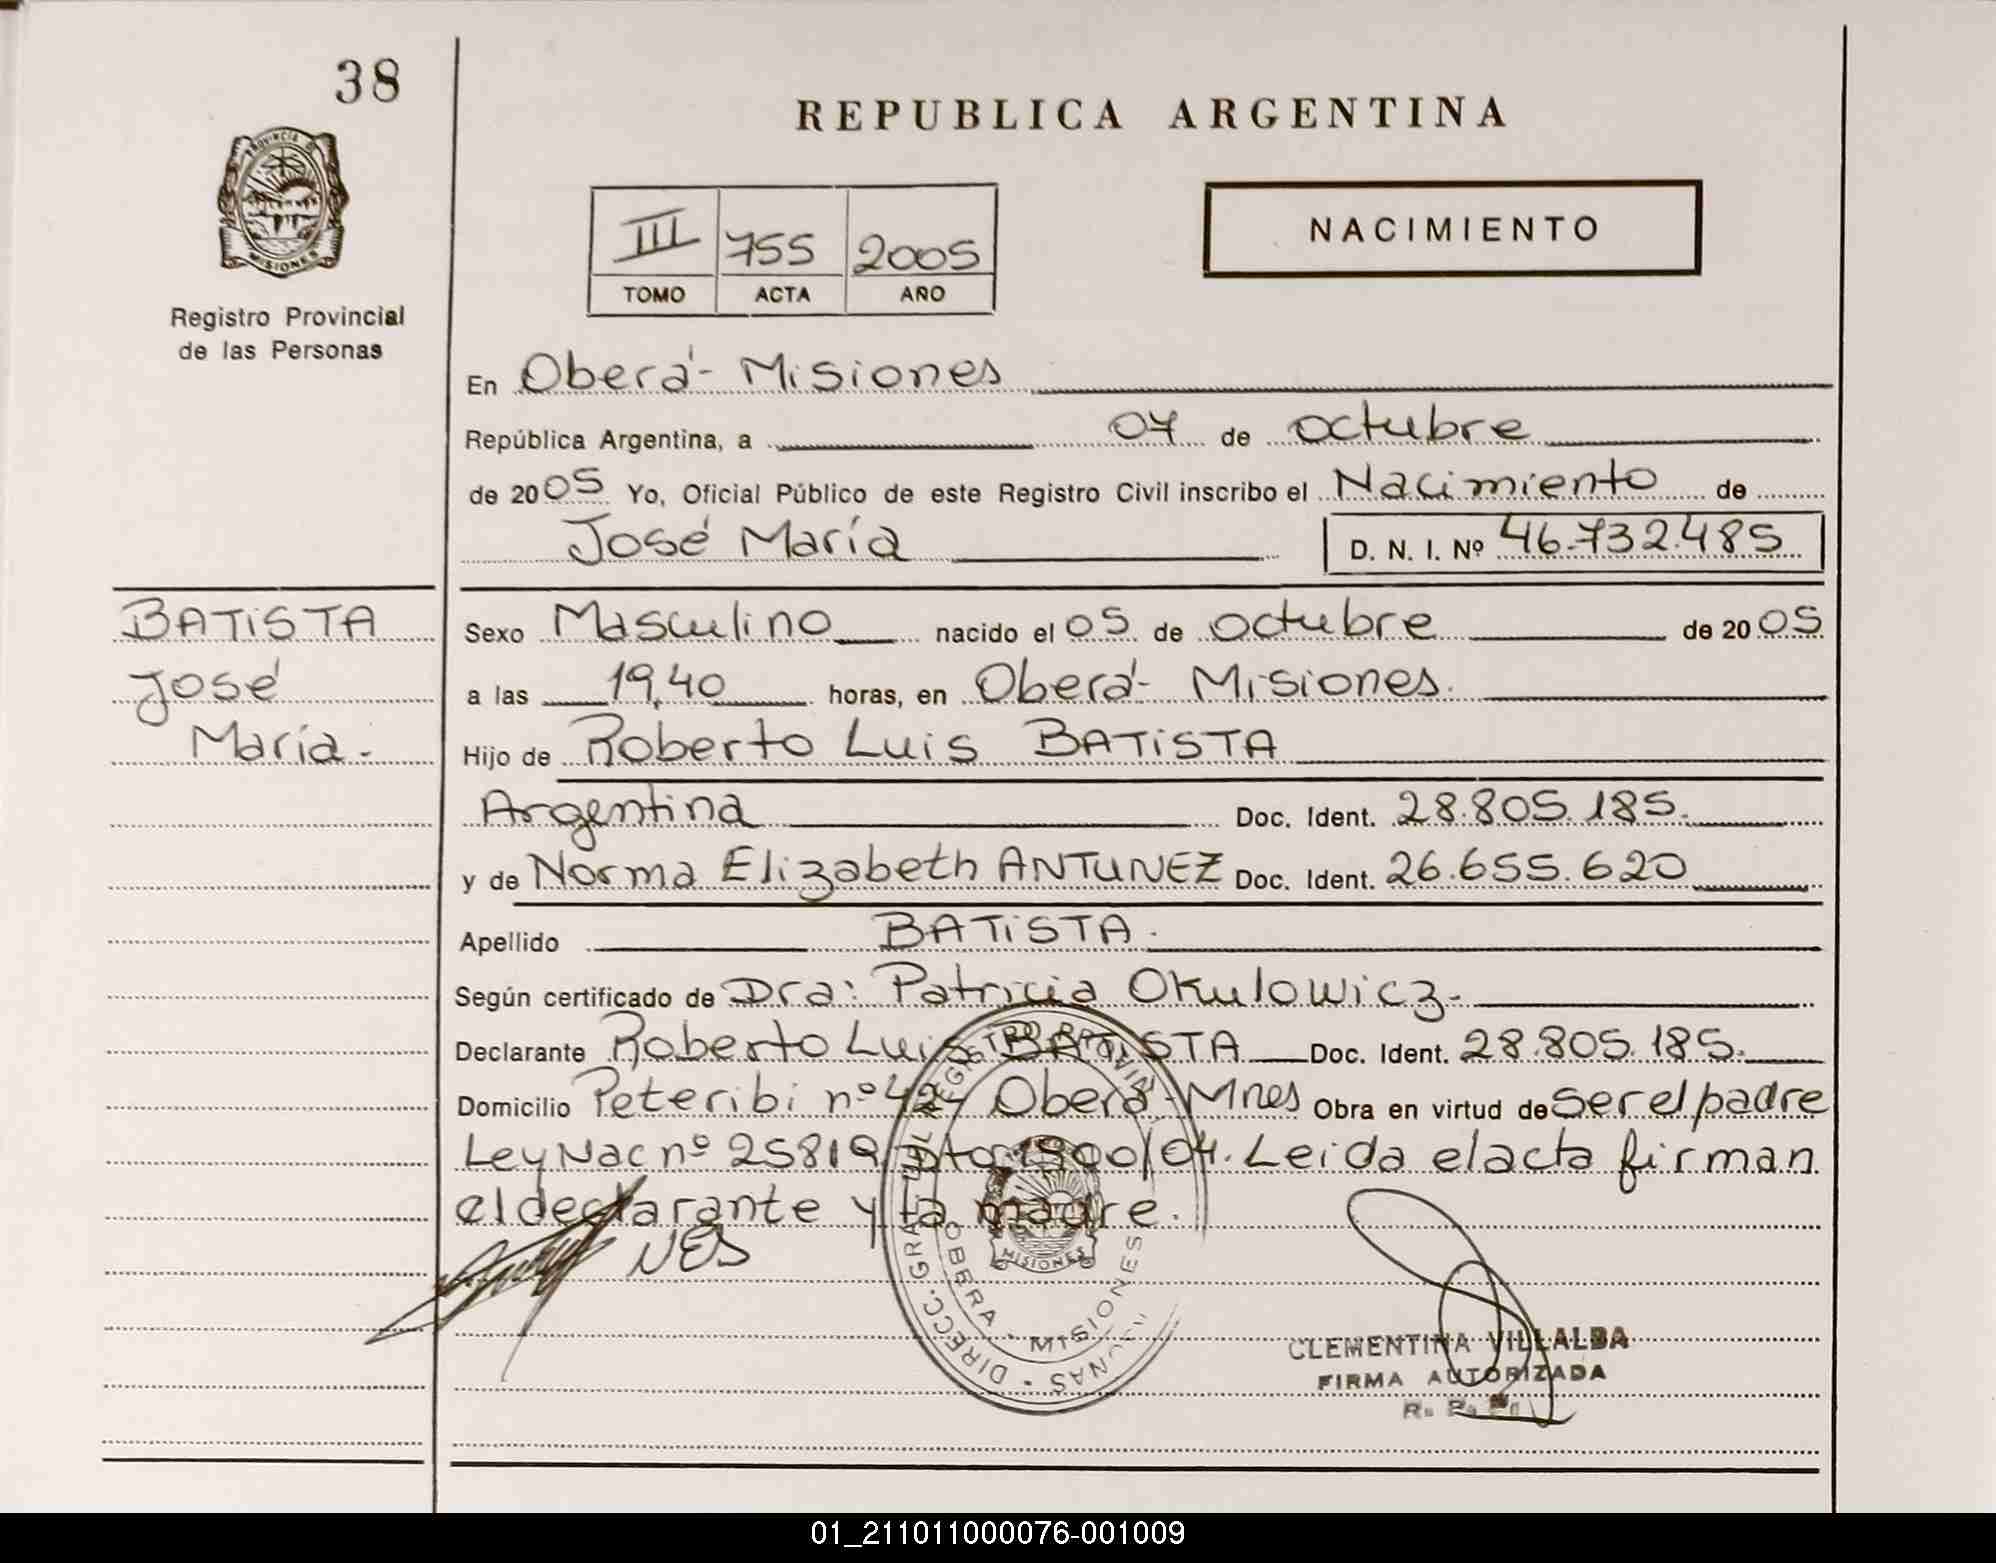 38
REPUBLICA ARGENTINA
PROVINCIA DE
MISIONES
III 755 2005
TOMO ACTA AÑO
NACIMIENTO
Registro Provincial
de las Personas
En Oberá - Misiones
República Argentina, a 07 de octubre
de 2005 Yo, Oficial Público de este Registro Civil inscribo el Nacimiento de
José María D. N. I. Nº 46.732.485
BATiSTA
José
María.-
Sexo Masculino nacido el 05 de octubre de 2005
a las 19,40 horas, en Oberá - Misiones.
Hijo de Roberto Luis BATiSTA
Argentina Doc. Ident. 28.805.185.
y de Norma Elizabeth ANTUNEZ Doc. Ident. 26.655.620
Apellido BATiSTA.
Según certificado de Dra: Patricia Okulowicz.-
Declarante Roberto Luis BATiSTA Doc. Ident. 28.805.185.
Domicilio Peteribi nº 424 Oberá - Mnes Obra en virtud de ser el padre
Ley Nac nº 25819 Dto 1900/04. Leida el acta firman
el declarante y la madre.
DIRECC. GRAL. DEL REGISTRO PROVINCIAL
OBERA - MISIONES
MISIONES
CLEMENTINA VILLALBA
FIRMA AUTORIZADA
01_211011000076-001009